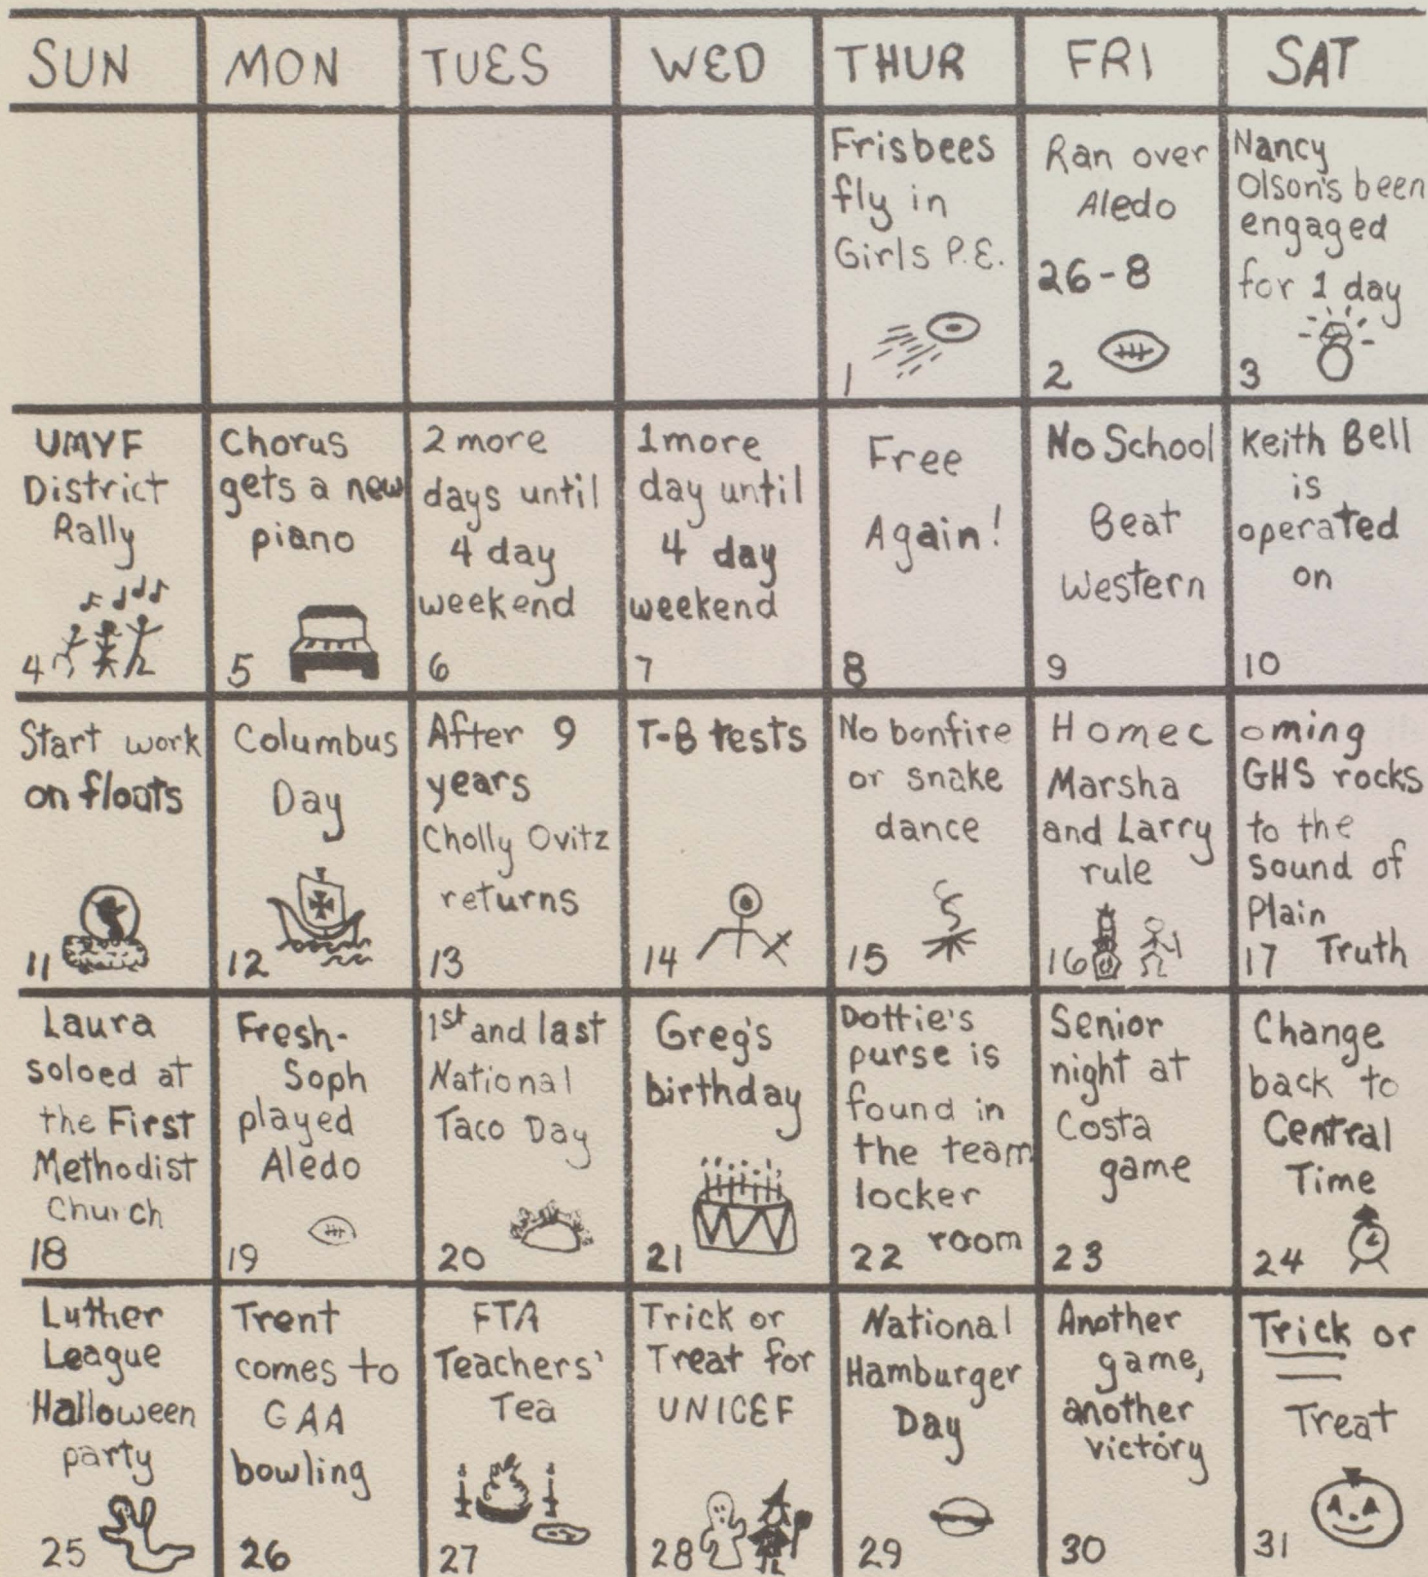 SUN
MON
TUES
WED
THUR
FRI
SAT
Frisbees
fly in
Girls P.E.
1
Ran over
Aledo
26-8
2
Nancy
Olson's been
engaged
for 1 day
3
UMYF
District
Rally
4
Chorus
gets a new
piano
5
2 more
days until
4 day
weekend
6
1 more
day until
4 day
weekend
7
Free
Again!
8
No School
Beat
Western
9
Keith Bell
is
operated
on
10
Start work
on floats
11
Columbus
Day
12
After 9
years
Cholly Ovitz
returns
13
T-B tests
14
No bonfire
or snake
dance
15
Homec
Marsha
and Larry
rule
16
oming
GHS rocks
to the
sound of
Plain
17 Truth
Laura
soloed at
the First
Methodist
Church
18
Fresh-
Soph
played
Aledo
19
1st and last
National
Taco Day
20
Greg's
birthday
21
Dottie's
purse is
found in
the team
locker
22 room
Senior
night at
Costa
game
23
Change
back to
Central
Time
24
Luther
League
Halloween
party
25
Trent
comes to
GAA
bowling
26
FTA
Teachers'
Tea
27
Trick or
Treat for
UNICEF
28
National
Hamburger
Day
29
Another
game,
another
victory
30
Trick or
Treat
31